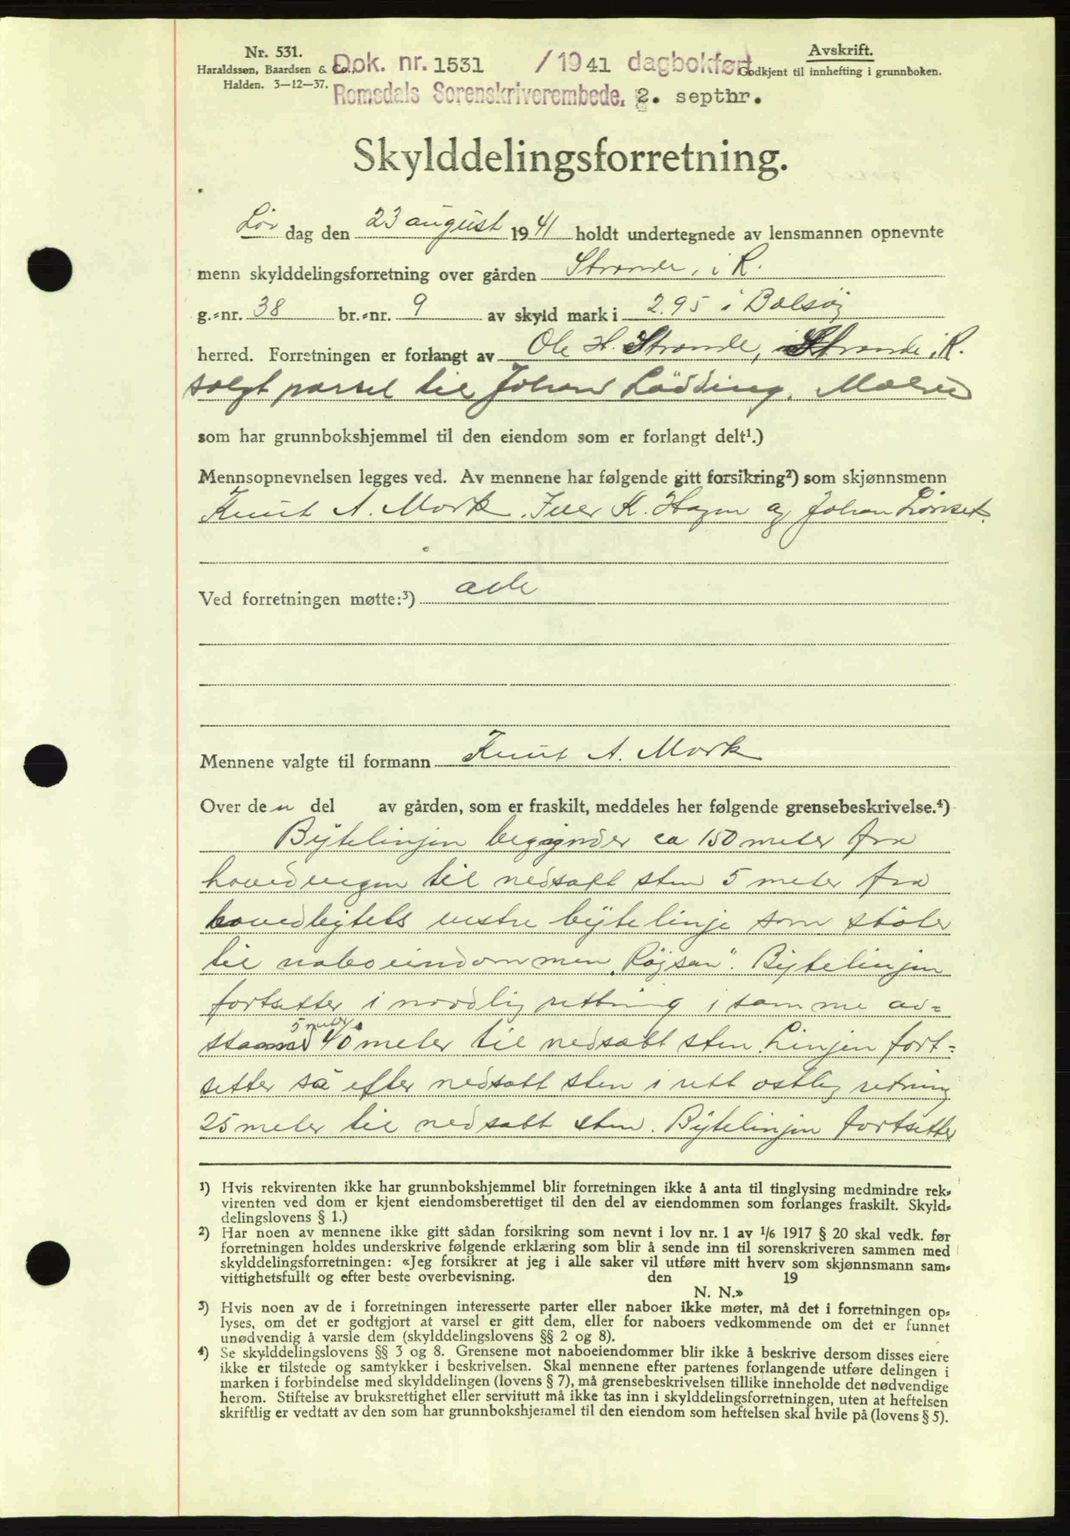 Nr. 531.
Haraldssen, Baardsen & Co.,
Halden. 3—12—37.
Dok. nr. 1531 /1941 dagbokført
Romsdals Sorenskriverembede, 2. septbr.
Avskrift.
Godkjent til innhefting i grunnboken.
Skylddelingsforretning.
Lør dag den 23 august 1941 holdt undertegnede av lensmannen opnevnte
menn skylddelingsforretning over gården Strande, i R.
g.-nr. 38 br.-nr. 9 av skyld mark i 2.95 i Bolsøy
herred. Forretningen er forlangt av Ole H. Strande, Strande i R.
solgt parsel til Johan Lødding, Molde
som har grunnbokshjemmel til den eiendom som er forlangt delt¹.)
Mennsopnevnelsen legges ved. Av mennene har følgende gitt forsikring²) som skjønnsmenn
Knut A. Mork, Iver K. Hagen og Johan Lønset.
Ved forretningen møtte:³) alle
Mennene valgte til formann Knut A. Mork
Over den del av gården, som er fraskilt, meddeles her følgende grensebeskrivelse.⁴)
Bytelinjen begynder ca 150 meter fra
hovedveigen til nedsatt sten 5 meter fra
hovedbøtets vestre bytelinje som støter
til naboeindommen "Røysan". Bytelinjen
fortsetter i nordlig rettning i samme av=
stand 5 meter 40 meter til nedsatt sten. Linjen fort=
setter så efter nedsatt sten i rett østlig retning
25 meter til nedsatt sten. Bytelinjen fortsetter
¹) Hvis rekvirenten ikke har grunnbokshjemmel blir forretningen ikke å anta til tinglysing medmindre rek-
virenten ved dom er kjent eiendomsberettiget til den del av eiendommen som forlanges fraskilt. Skyld-
delingslovens § 1.)
²) Har noen av mennene ikke gitt sådan forsikring som nevnt i lov nr. 1 av 1/6 1917 § 20 skal vedk. før
forretningen holdes underskrive følgende erklæring som blir å sende inn til sorenskriveren sammen med
skylddelingsforretningen: «Jeg forsikrer at jeg i alle saker vil utføre mitt hverv som skjønnsmann sam-
vittighetsfullt og efter beste overbevisning. den 19
N. N.»
³) Hvis noen av de i forretningen interesserte parter eller naboer ikke møter, må det i forretningen op-
lyses, om det er godtgjort at varsel er gitt dem, eller for naboers vedkommende om det er funnet
unødvendig å varsle dem (skylddelingslovens §§ 2 og 8).
⁴) Se skylddelingslovens §§ 3 og 8. Grensene mot naboeiendommer blir ikke å beskrive dersom disses eiere
ikke er tilstede og samtykker i beskrivelsen. Skal mennene efter partenes forlangende utføre delingen i
marken i forbindelse med skylddelingen (lovens § 7), må grensebeskrivelsen tillike inneholde det nødvendige
herom. Stiftelse av bruksrettighet eller servitutt må ikke tas inn i skylddelingsforretningen, uten at heftelsen
skriftlig er vedtatt av den som har grunnbokshjemmel til den eiendom som heftelsen skal hvile på (lovens § 5).